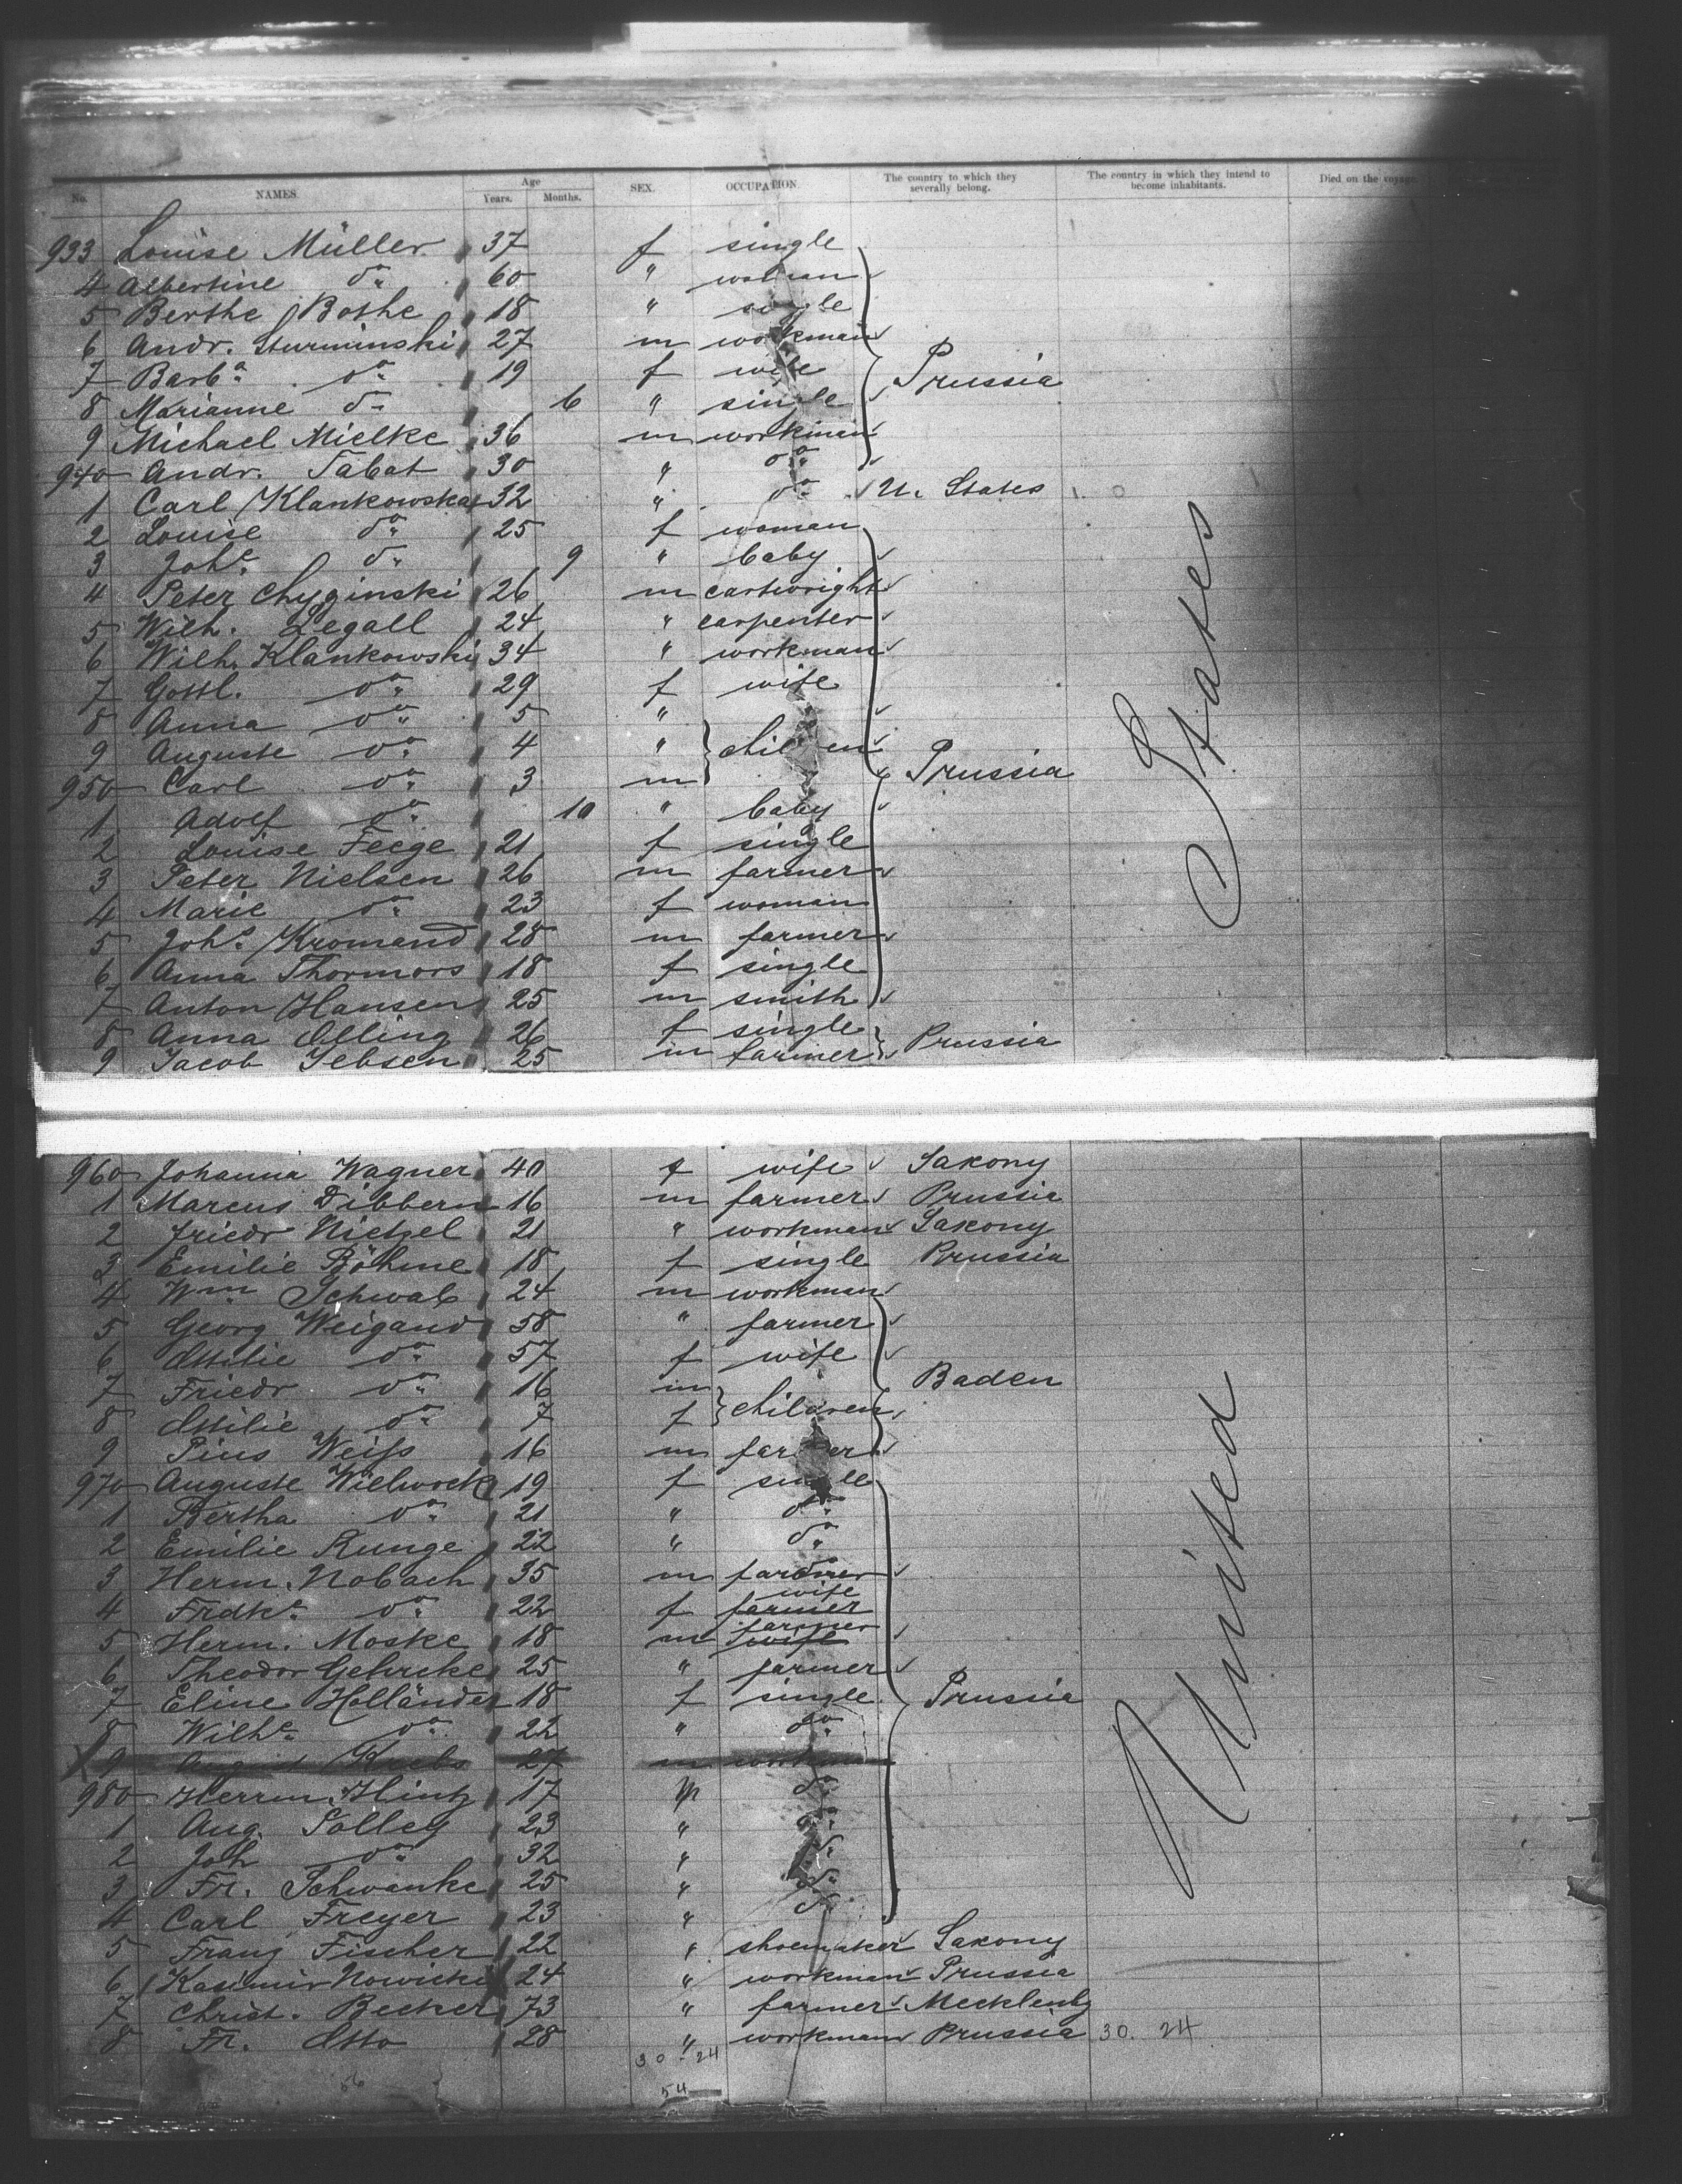 No. NAMES. Age Years. Months. SEX. OCCUPATION. The country to which they severally belong. The country in which they intend to become inhabitants. Died on the voyage.
933 Louise Müller 37 f single
4 Albertine do. 60 " woman
5 Berthe Bothe 18 " single
6 Andr. Sturminski 27 m workman
7 Barba. do. 19 f wife Prussia
8 Marianne do. 6 " single
9 Michael Mielke 36 m workman
940 Andr. Tabat 30 " do.
1 Carl Klankowska 32 " do. U. States
2 Louise do. 25 f woman
3 Johe. do. 9 " baby
4 Peter Chyginski 26 m cartwright
5 Wilh. Legall 24 " carpenter
6 Wilh. Klankowski 34 " workman
7 Gottl. do. 29 f wife
8 Anna do. 5 "
9 Auguste do. 4 " children
950 Carl do. 3 m Prussia
1 Adolf do. 10 " baby
2 Louise Feege 21 f single
3 Peter Nielsen 26 m farmer
4 Marie do. 23 f woman
5 Johs. Kromand 28 m farmer
6 Anna Thormors 18 f single
7 Anton Hansen 25 m smith
8 Anna Olling 26 f single Prussia
9 Jacob Jebsen 25 m farmer
States
960 Johanna Wagner 40 f wife Saxony
1 Marcus Dibbern 16 m farmer Prussia
2 Friedr Nietzel 21 " workman Saxony
3 Emilie Böhme 18 f single Prussia
4 Wm. Schwab 24 m workman
5 Georg Weigand 58 " farmer
6 Ottilie do. 57 f wife
7 Friedr do. 16 m Baden
8 Ottilie do. 7 f children
9 Pius Weiß 16 m farmer
970 Auguste Wielworek 19 f single
1 Bertha do. 21 " do.
2 Emilie Runge 22 " do.
3 Herm. Nobach 35 m farmer
4 Frdke. do. 22 f farmer wife
5 Herm. Moske 18 m wife farmer
6 Theodor Gehrcke 25 " farmer
7 Eline Holländer 18 f single Prussia
8 Wilhe. do. 22 " do.
9 August Krebs 27 m workman
980 Herrm. Hintz 17 m do.
1 Aug. Polley 23 " do.
2 Joh do. 32 " do.
3 Fr. Schwanke 25 " do.
4 Carl Freyer 23 " do.
5 Franz Fischer 22 " shoemaker Saxony
6 Kasimir Nowicki 24 " workman Prussia
7 Christ. Becker 73 " farmer Mecklenbg
8 Fr. Otto 28 " workman Prussia 30. 24
United
30 - 24
54